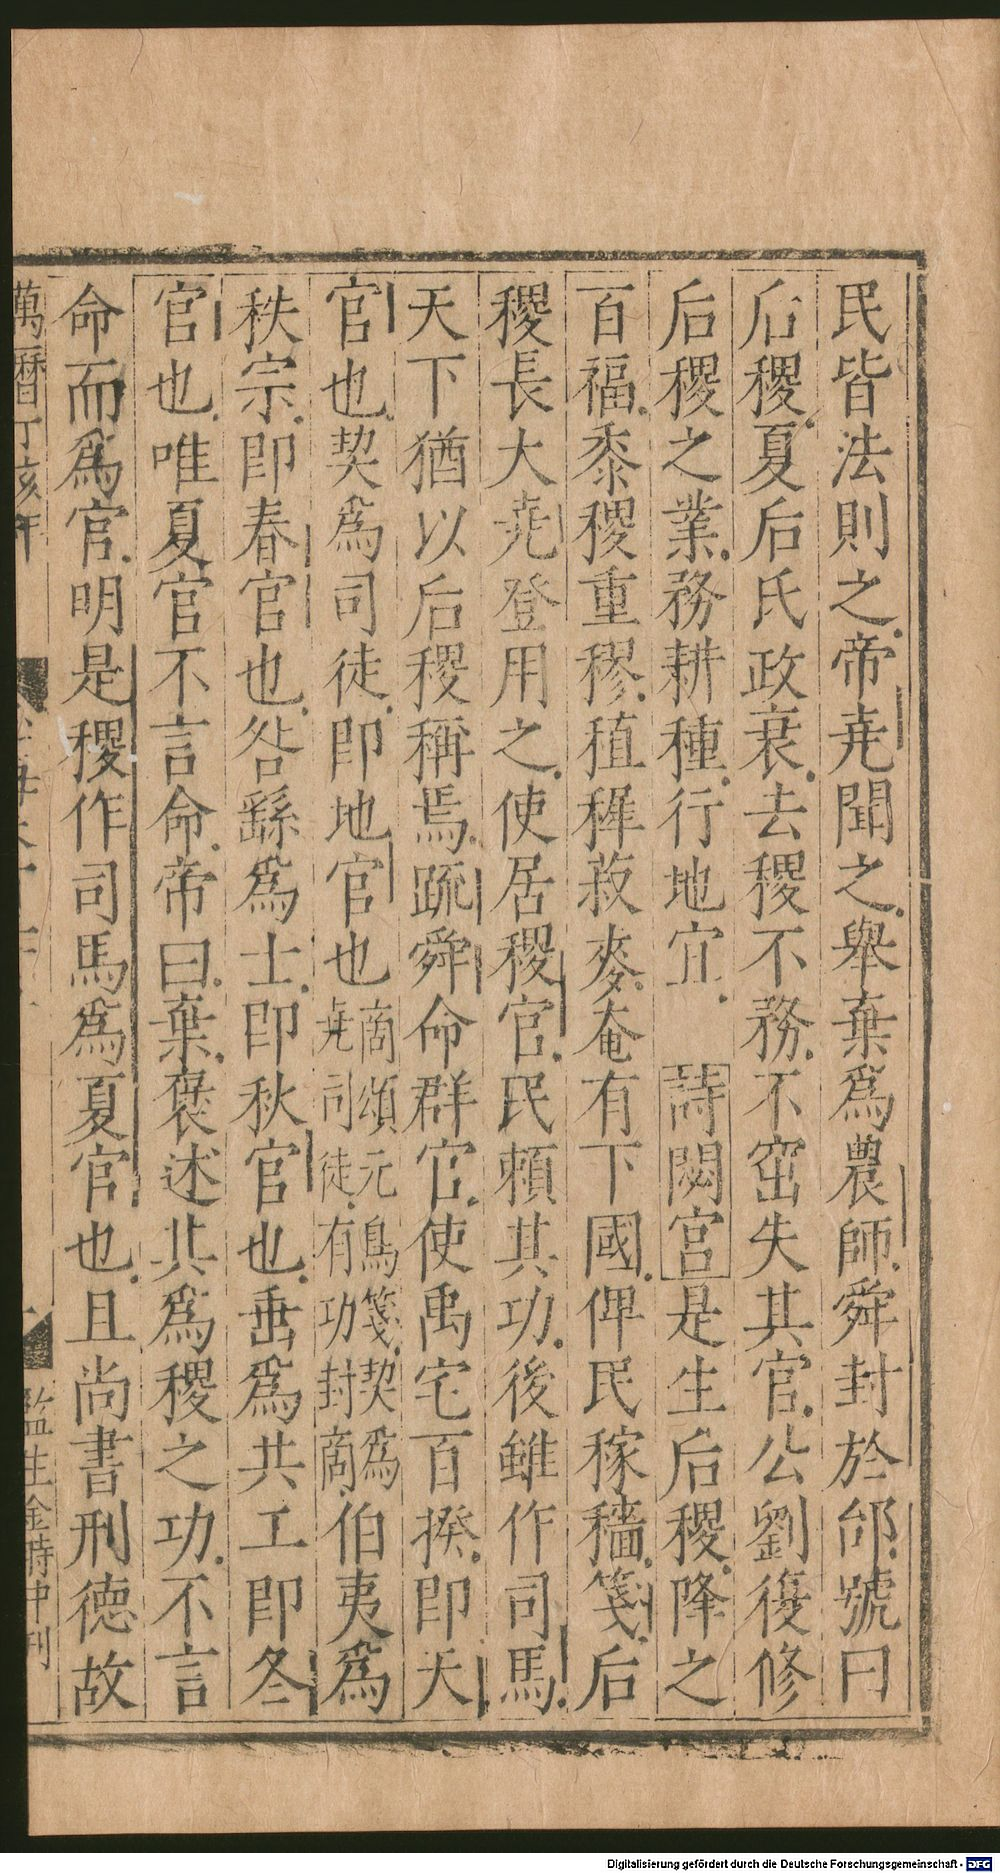 民皆法則之帝堯聞之舉棄爲農師舜封於邰號曰
后稷夏后氏政衰去稷不務不窋失其官公劉復修
后稷之業務耕種行地宜 詩閟宮是生后稷降之
百福黍稷重穋稙穉菽麥奄有下國俾民稼穡箋后
稷長大堯登用之使居稷官民賴其功後雖作司馬
天下猶以后稷稱焉疏舜命群官使禹宅百揆即天
官也契爲司徒即地官也商頌元鳥箋契爲堯司徒有功封商伯夷爲
秩宗即春官也咎繇爲士即秋官也垂爲共工即冬
官也唯夏官不言命帝曰棄褒述其爲稷之功不言
命而爲官明是稷作司馬爲夏官也且尚書刑德故
萬曆丁亥年
監生金時中刊
Digitalisierung gefördert durch die Deutsche Forschungsgemeinschaft - DFG